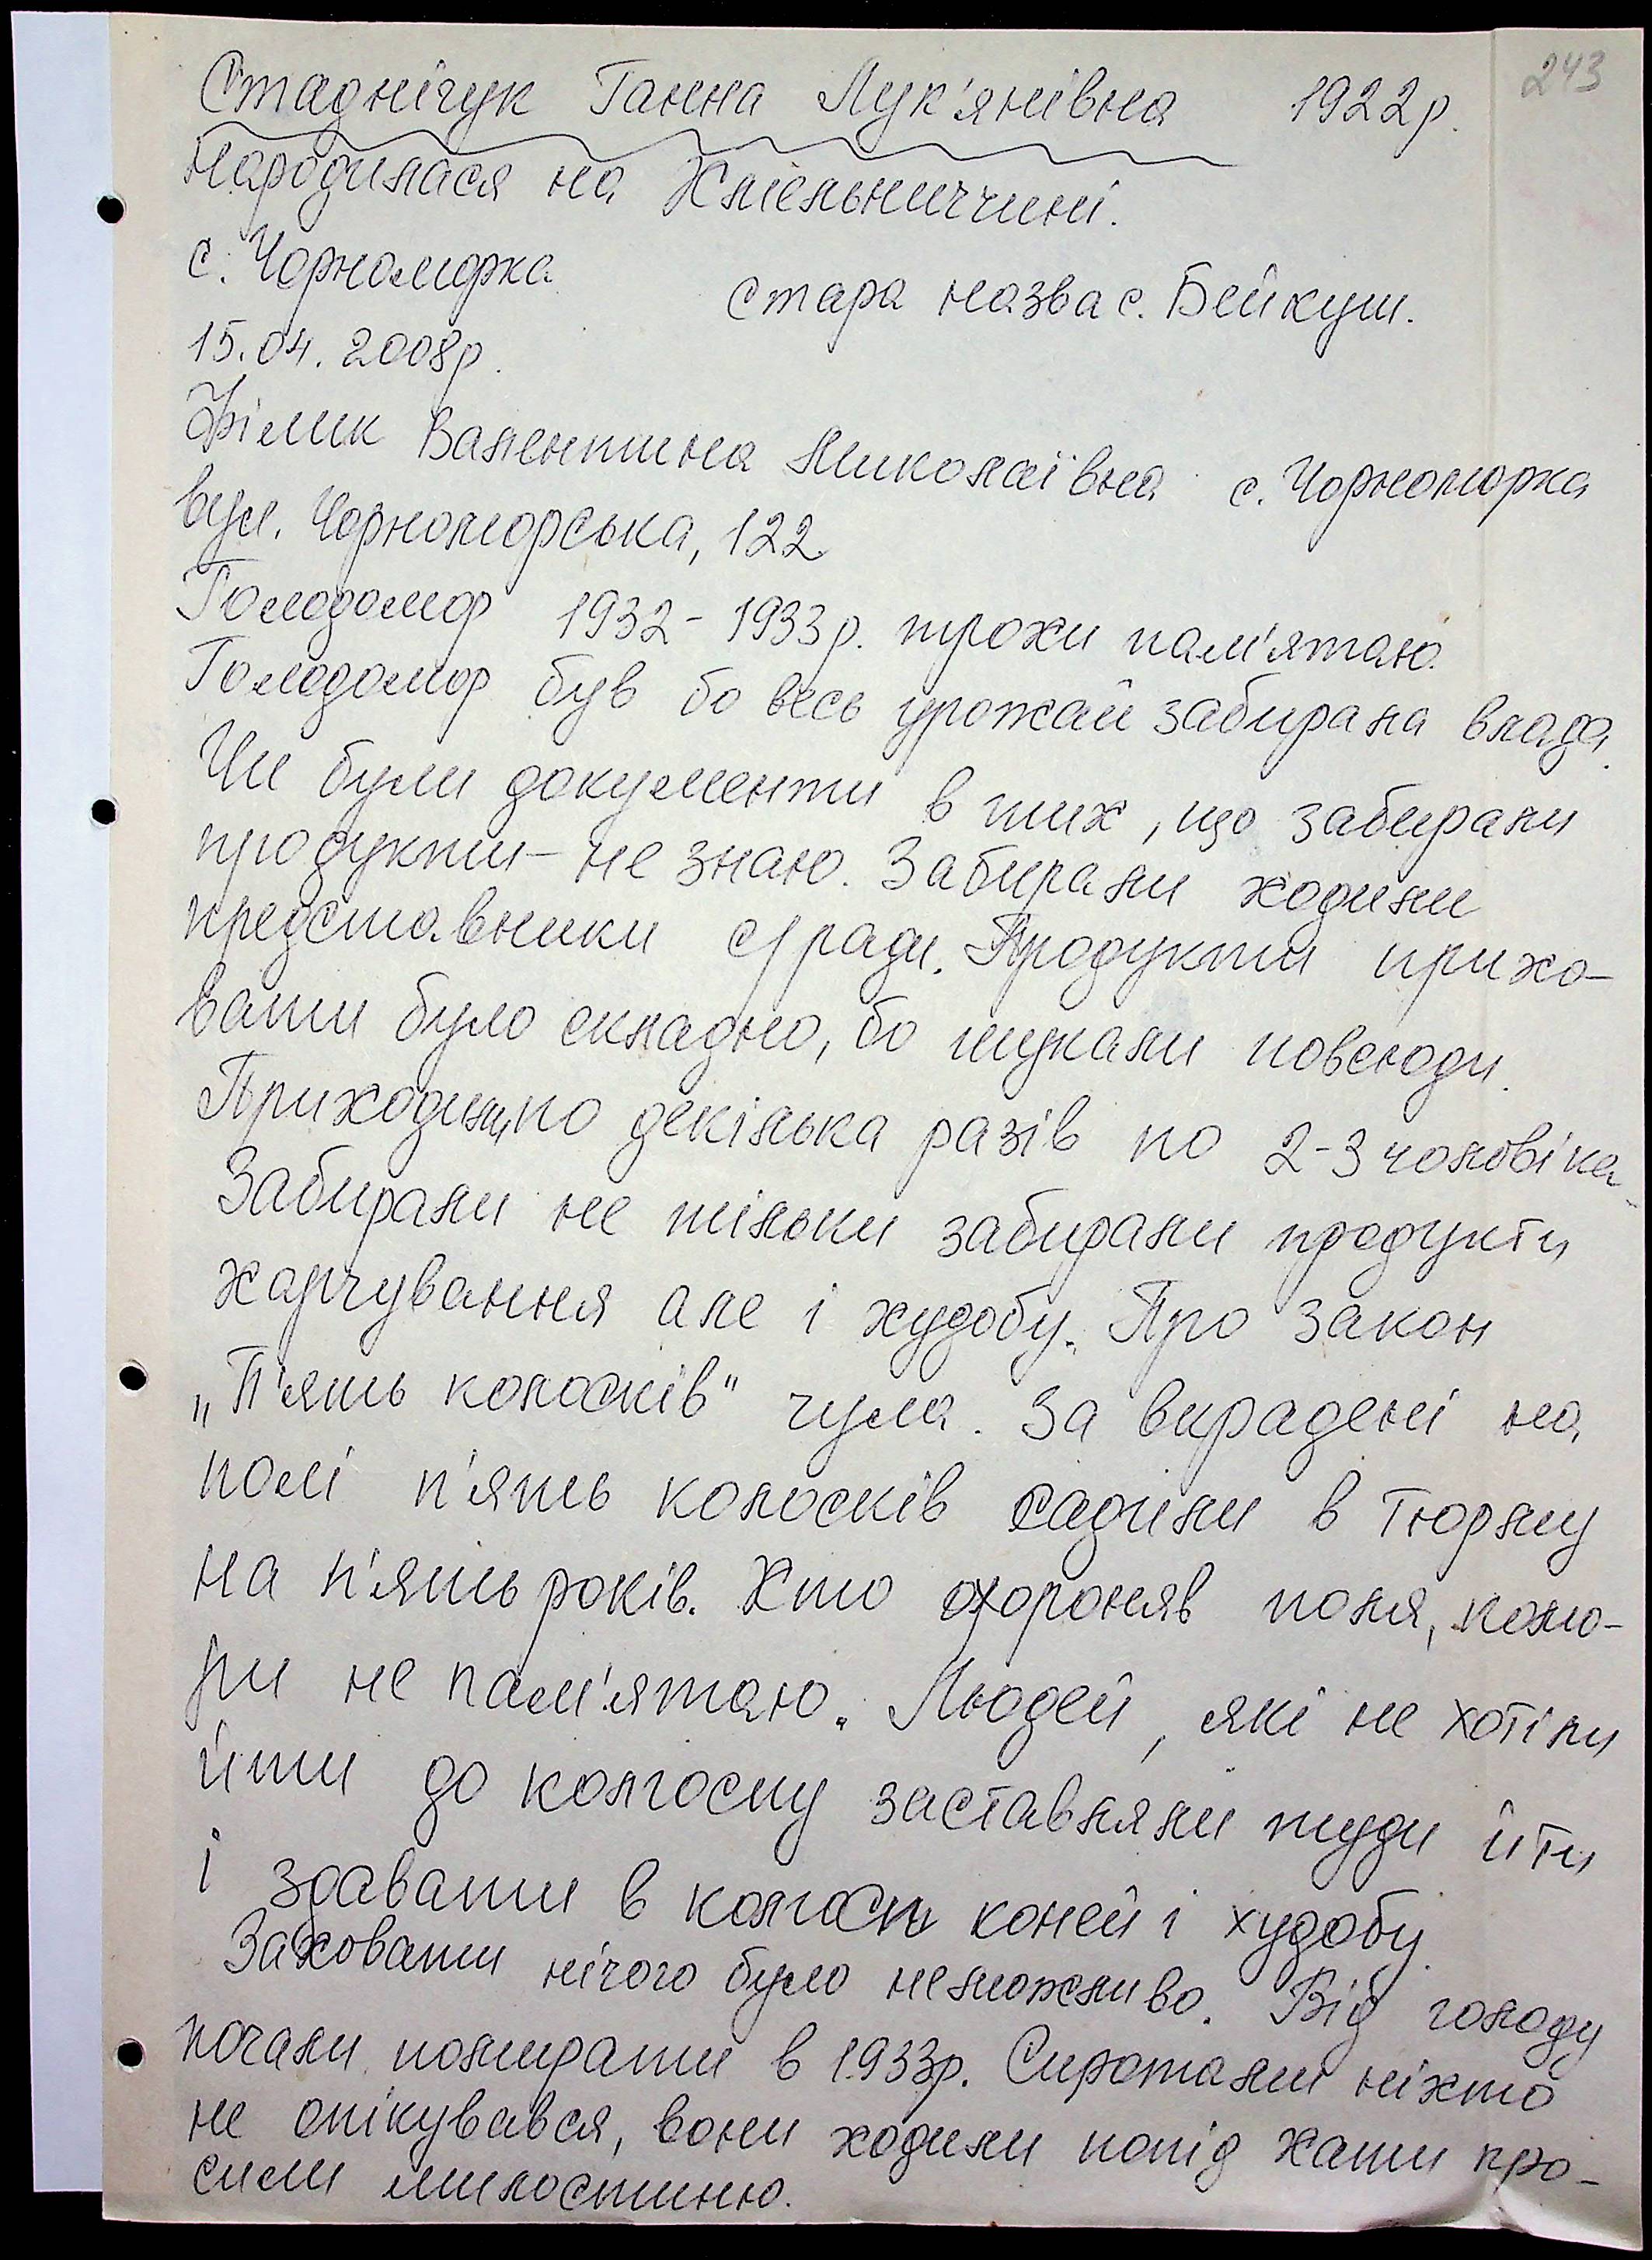 243
Стаднічук Ганна Лук'янівна 1922р.
народилася на Хмельниччині.
с. Чорноморка
стара назва с. Бейкуш.
15.04.2008р.
Філик Валентина Миколаївна с. Чорноморка
вул. Чорноморська, 122
Голодомор 1932-1933р. трохи пам'ятаю.
Голодомор був бо весь урожай забирала влада.
Чи були документи в тих, що забирали
продукти - не знаю. Забирали ходили
представники с/ради. Продукти прихо-
вати було складно, бо шукали повсюди.
Приходили по декілька разів по 2-3 чоловіка.
Забирали не тільки забирали продукти
харчування але і худобу. Про закон
„П'ять колосків" чула. За вкрадені на
полі п'ять колосків садили в тюрму
на п'ять років. Хто охороняв поля, комо-
ри не пам'ятаю. Людей, які не хотіли
йти до колгоспу заставляли туди йти
і здавати в колгосп коней і худобу.
Заховати нічого було неможливо. Від голоду
почали помирати в 1933р. Сиротами ніхто
не опікувався, вони ходили попід хати про-
сили милостиню.